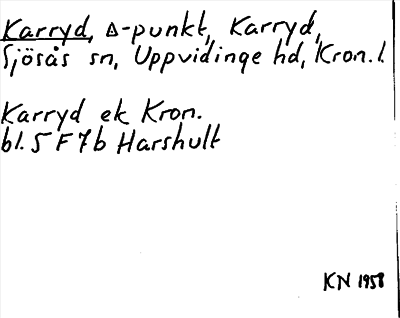 Karryd, Δ-punkt, Karryd,
Sjösås sn, Uppvidinge hd, Kron. l.
Karryd ek Kron.
bl. 5 F 7b Harshult
KN 1958